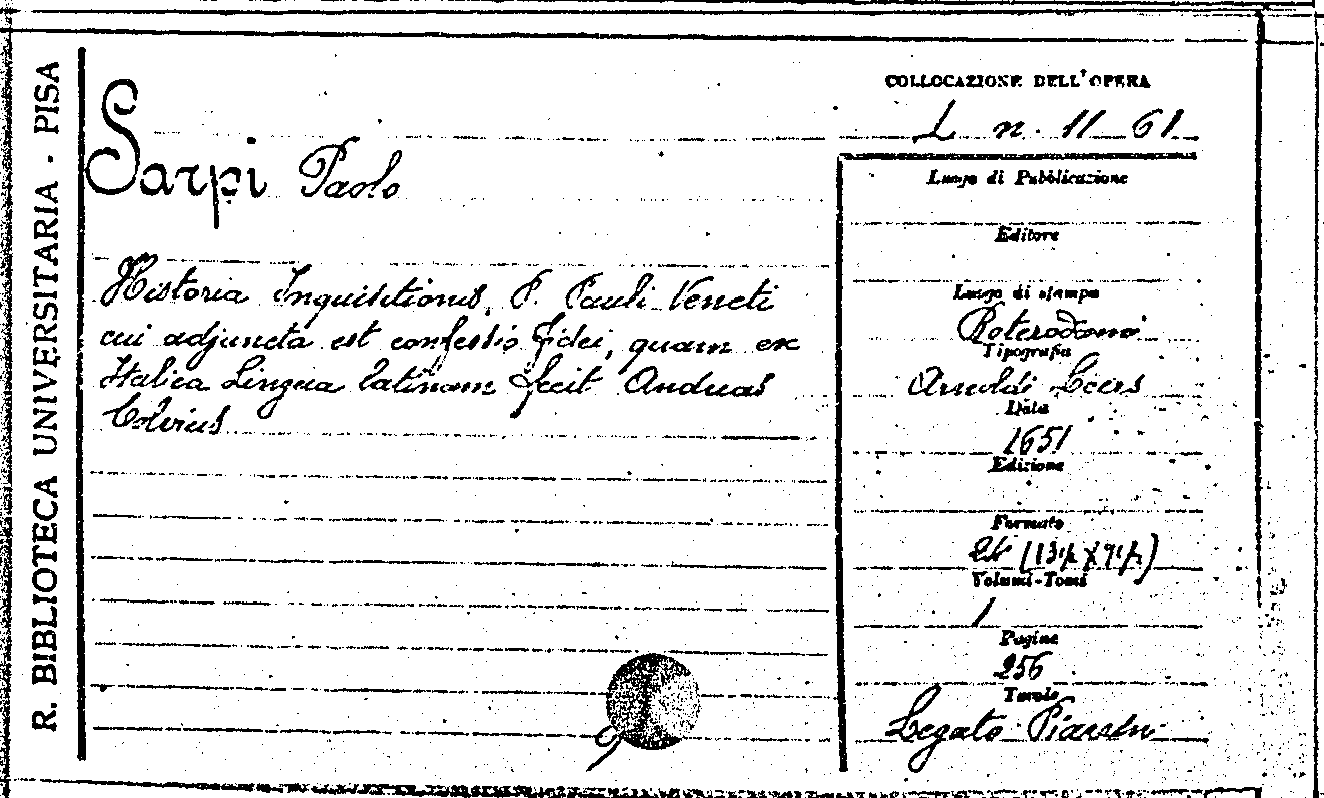 R. BIBLIOTECA UNIVERSITARIA - PISA
Sarpi Paolo
Historia Inquisitionis, P. Pauli Veneti
cui adjuncta est confessio fidei, quam ex
Italica Lingua latinam fecit Andreas
Colvius
COLLOCAZIONE DELL'OPERA
L n. 11 61
Luogo di Pubblicazione
Editore
Luogo di stampa
Roterodami
Tipografia
Arnoldi Leers
Data
1651
Edizione
Formato
24
Volumi-Tomi
1
Pagine
256
Tavole
Legato